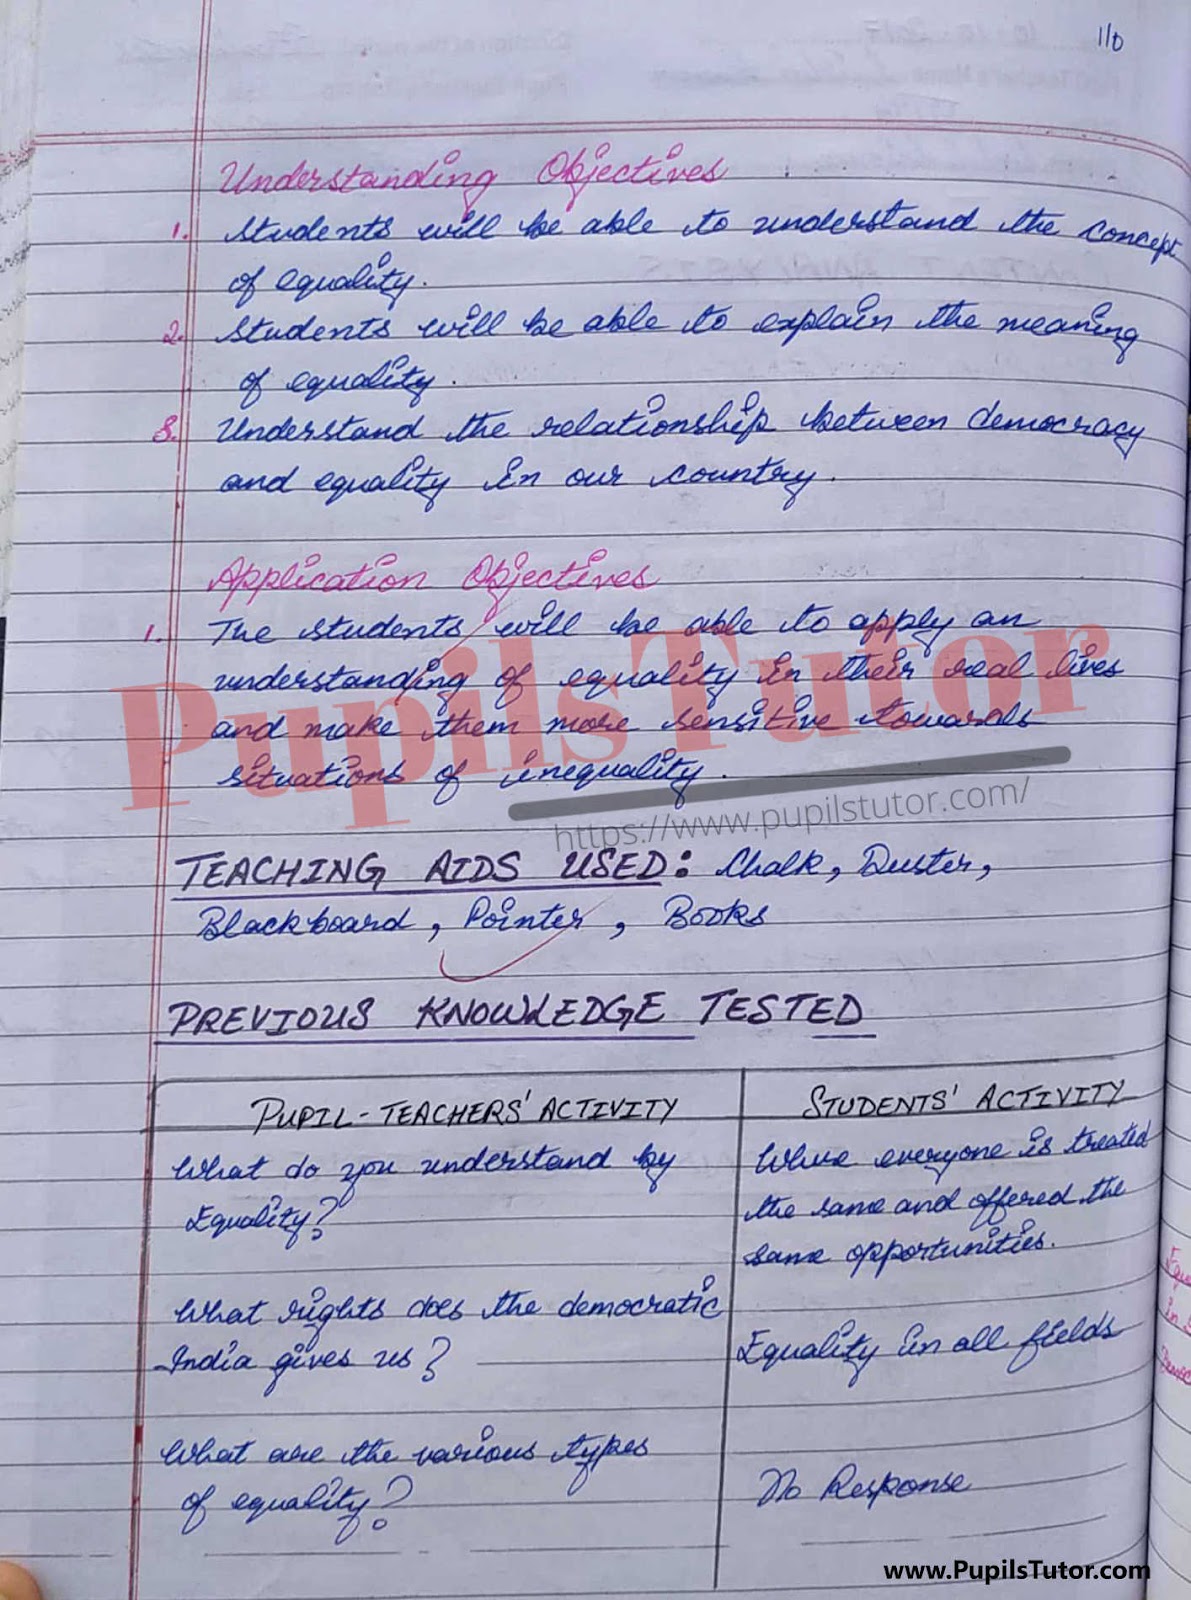 110
Understanding Objectives
1. Students will be able to understand the concept
of equality.
2. Students will be able to explain the meaning
of equality.
3. Understand the relationship between democracy
and equality in our country.
Application Objectives
1. The students will be able to apply an
understanding of equality in their real lives
and make them more sensitive towards
situations of inequality.
Pupils Tutor
https://www.pupilstutor.com/
TEACHING AIDS USED: Chalk, Duster,
Blackboard, Pointer, Books
PREVIOUS KNOWLEDGE TESTED
PUPIL-TEACHERS' ACTIVITY
What do you understand by
Equality?
What rights does the democratic
India gives us?
What are the various types
of equality?
STUDENTS' ACTIVITY
Where everyone is treated
the same and offered the
same opportunities.
Equality in all fields
No Response
www.PupilsTutor.com